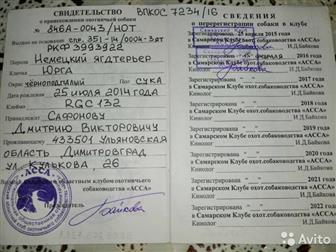 СВИДЕТЕЛЬСТВО
о происхождении охотничьей собаки
ВПКОС 7234/16
846А-0043/НОТ
Выдано на основании спр. 351-14/0004-ЗЯТ
РКФ 3993922
Порода Немецкий ягдтерьер
Кличка Юрга
Окрас чернопodпалый Пол СУКА
Дата рождения 25 июля 2014 года
RGC 132
Владелец САФОНОВУ
Дмитрию Викторовичу
433501 Ульяновская
область Димитровград
ул. Куйбыкова, 26
областным клубом охотничьего
собаководства «АССА»
Председатель
СВЕДЕНИЯ
о перерегистрации собаки в клубе
Зарегистрирована 2015 года
в Самарском Клубе охот.собаководства «АССА»
И.Д.Байкова
Зарегистрирована 15 февраля 2016 г
в Самарском Клубе охот.собаководства «АССА»
Кинолог И.Д.Байкова
Зарегистрирована 2017 г
в Самарском Клубе охот.собаководства «АССА»
Кинолог И.Д.Байкова
Зарегистрирована 2018 г
в Самарском Клубе охот.собаководства «АССА»
Кинолог И.Д.Байкова
Зарегистрирована 2019 г
в Самарском Клубе охот.собаководства «АССА»
Кинолог И.Д.Байкова
Зарегистрирована 2020 г
в Самарском Клубе охот.собаководства «АССА»
Кинолог И.Д.Байкова
Зарегистрирована 2021 г
в Самарском Клубе охот.собаководства «АССА»
Кинолог И.Д.Байкова
Зарегистрирована 2022 г
в Самарском Клубе охот.собаководства «АССА»
Кинолог
АССА
Avito